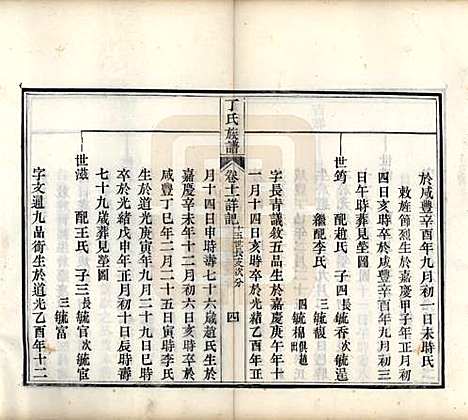 於咸豐辛酉年九月初一日未時氏
敕旌節烈生於嘉慶甲子年正月初
四日亥時卒於咸豐辛酉年九月三
日午時葬見塋圖
世筠 配趙氏 子四 長毓香 次毓暹
繼配李氏 三毓馥
四毓棉 俱趙出
字長青議敘五品生於嘉慶庚午年十
一月十四日亥時卒於光緒乙酉年正
丁氏族譜
卷十一詳記
四
月十四日申時壽七十六歲趙氏生於
嘉慶辛未年十二月初十日亥時卒於
咸豐丁巳年二月二十五日寅時李氏
生於道光庚寅年九月二十九日巳時
卒於光緒戊申年正月初十日辰時壽
七十九歲葬見塋圖
世滋 配王氏 子三 長毓官 次毓宦
三毓富
字文通九品銜生於道光乙酉年十二